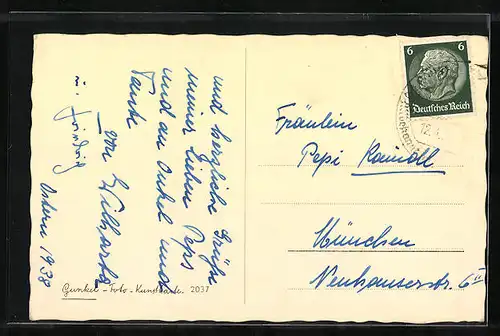 und herzliche Grüße
meiner lieben Peps
und an Onkel und
Tante
von
u. Friedrig
Ostern 1938
Gunkel - Foto - Kunstkarte. 2037
6 6
Deutsches Reich
12.
Fräulein
Pepi Kaindl
München
Neuhauserstr. 6 II